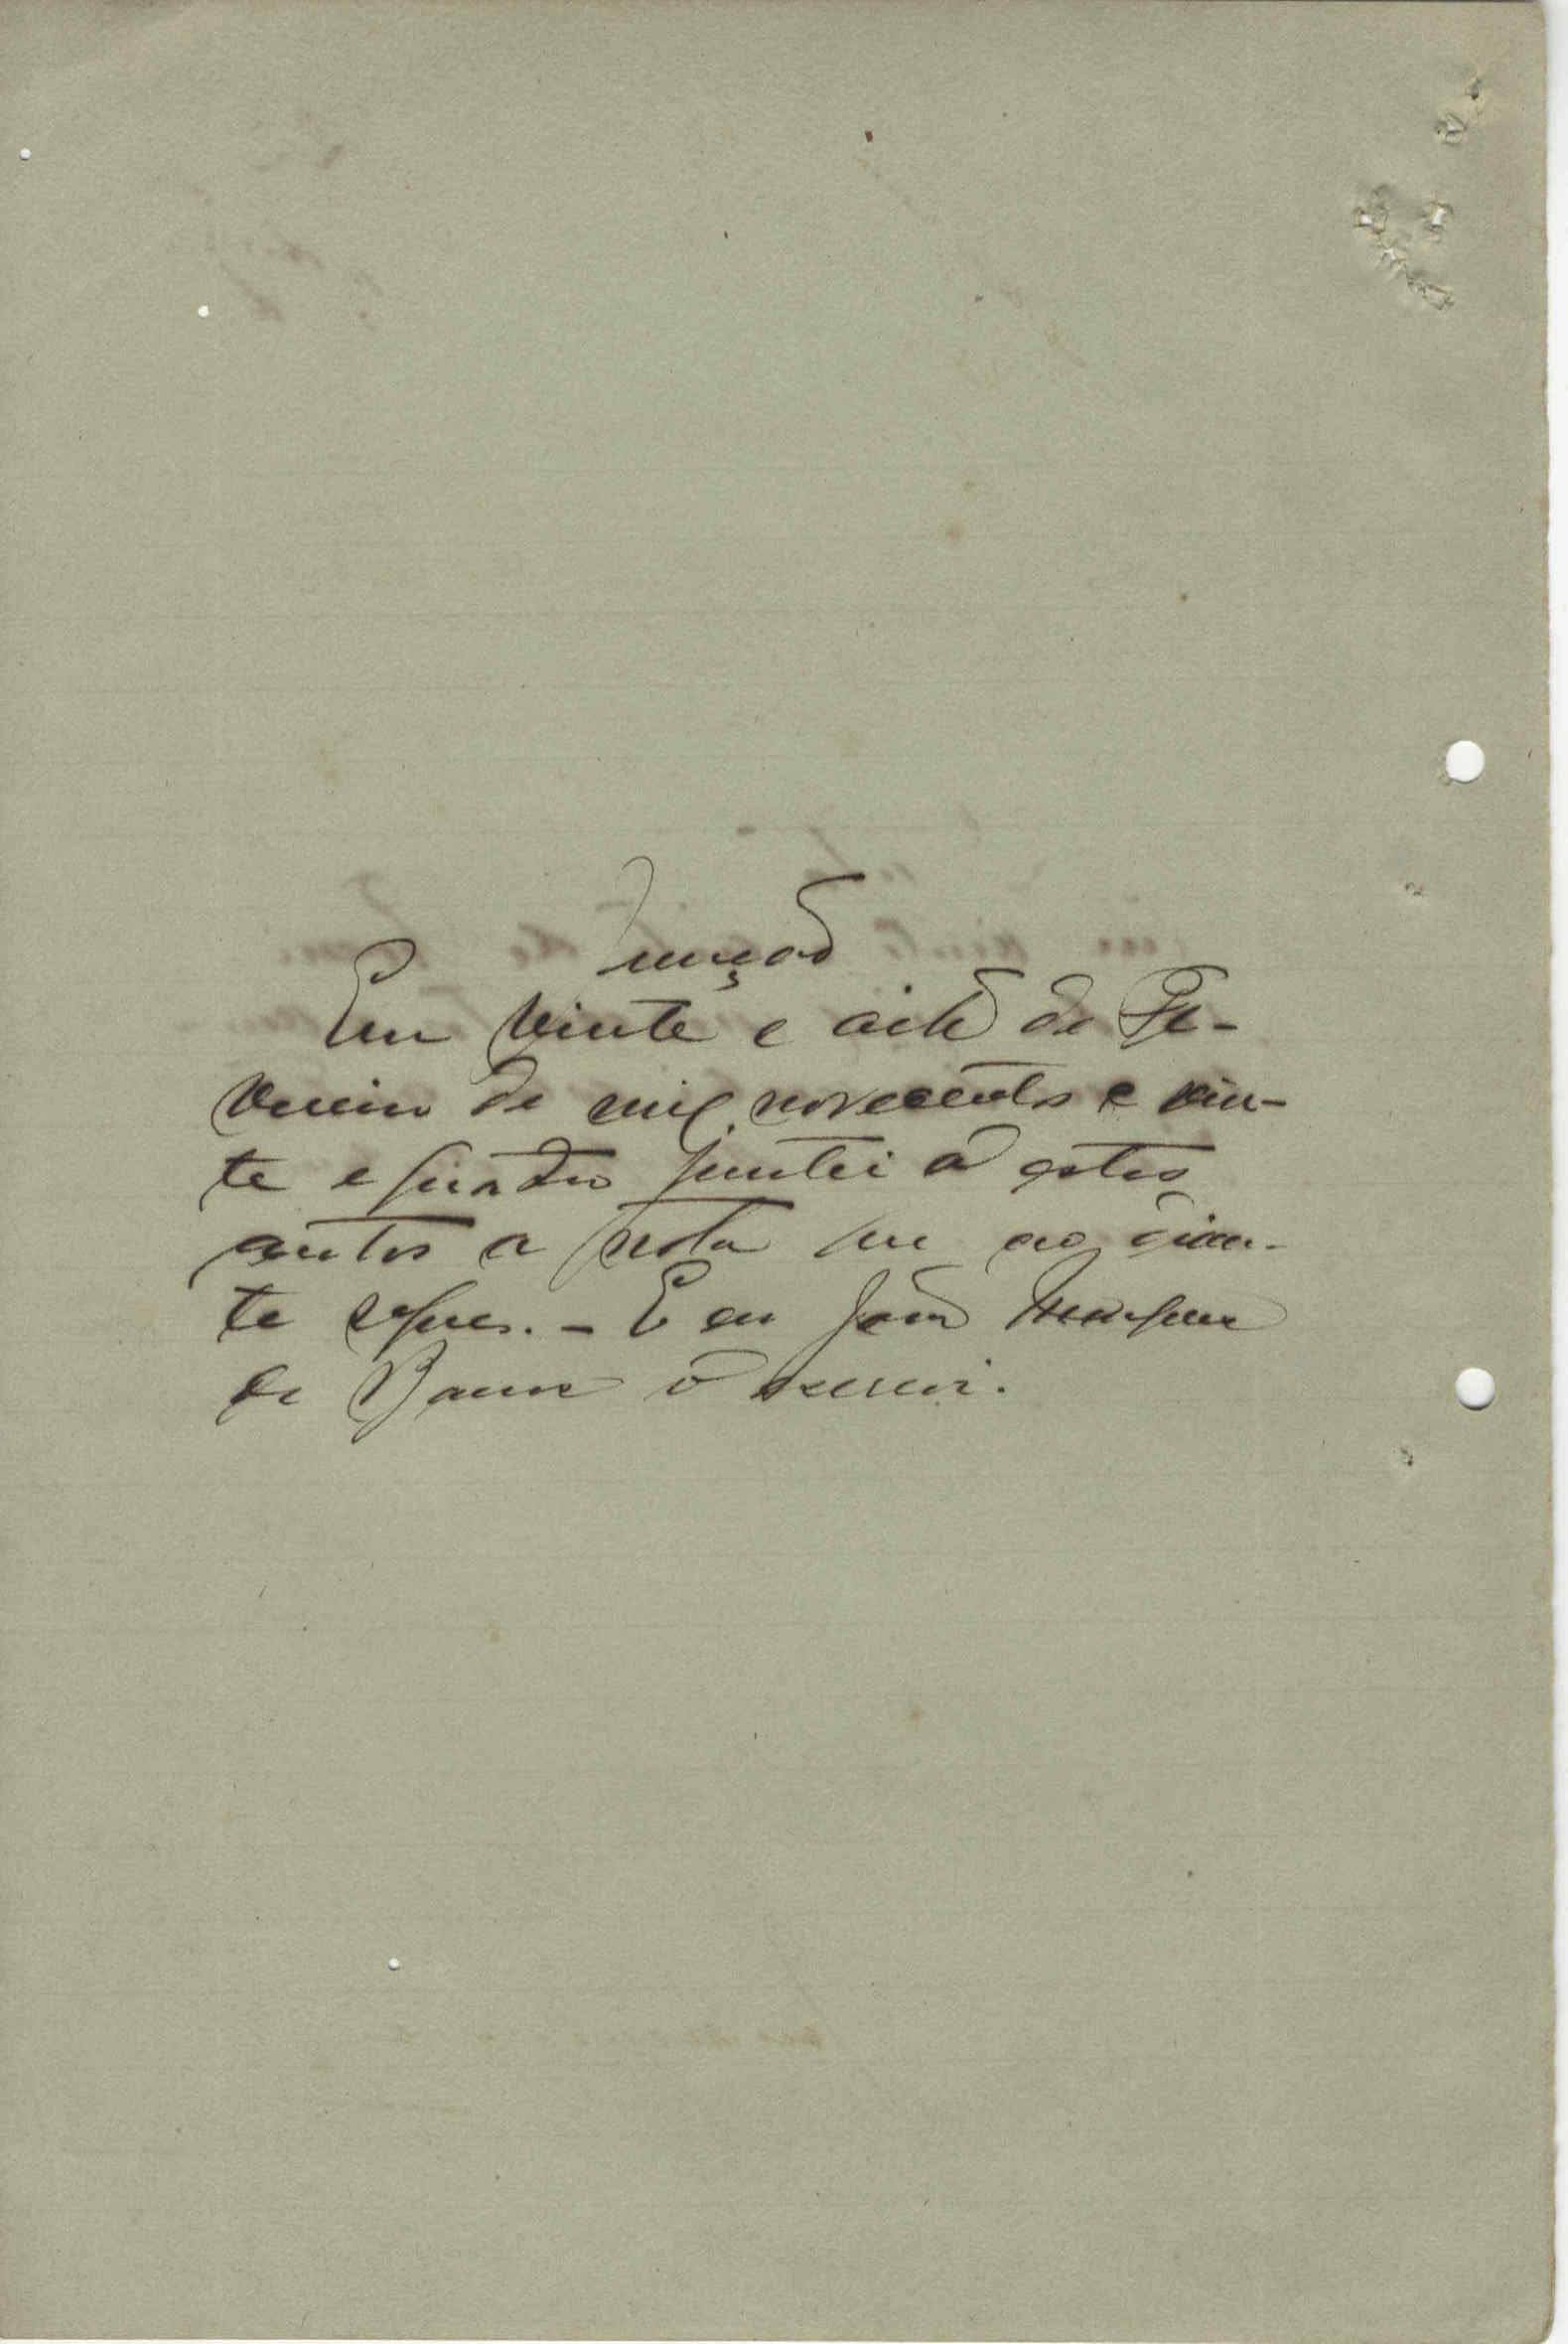 Junção
Em vinte e oito de Fe-
vereiro de mil novecentos e vin-
te e quatro juntei a estes
autos a nota que ao dian-
te segue. - E eu João Marques
de Barros o escrevi.